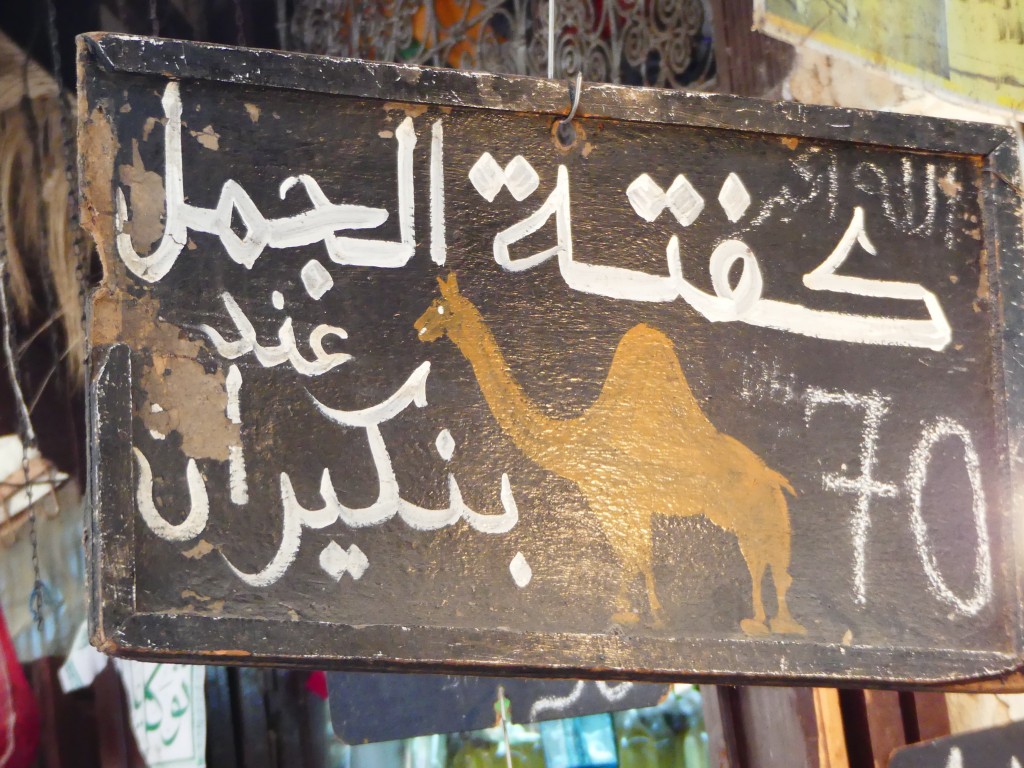 الله اكبر
كفتة الجمل
عند
بنكيران
70
توكل